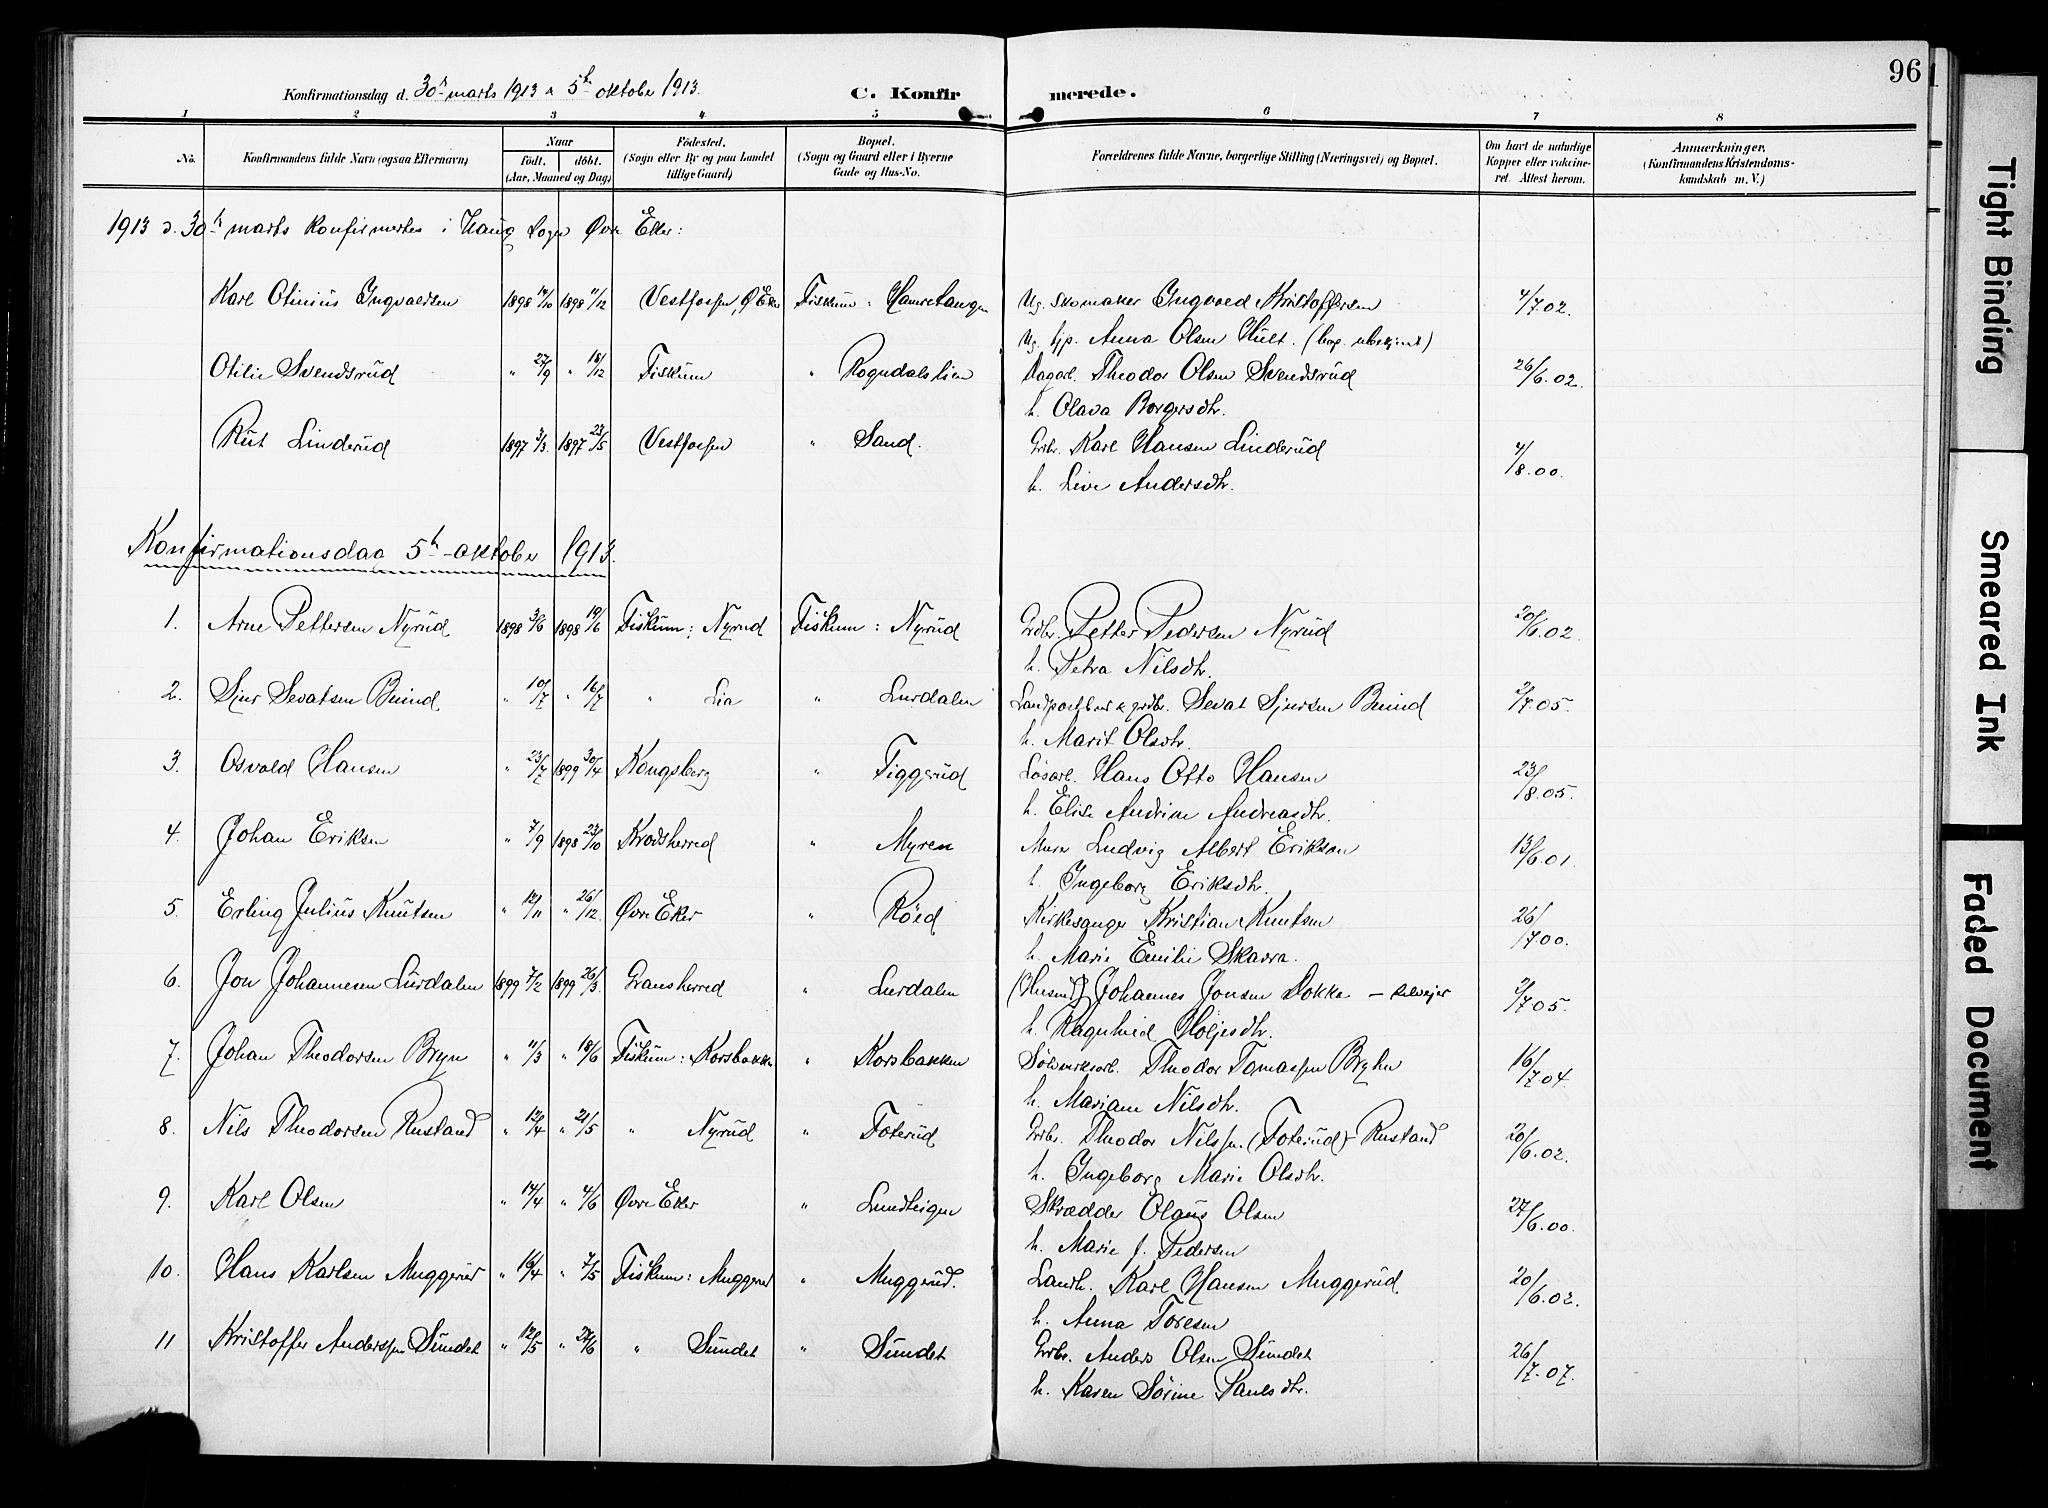 96
Konfirmationsdag d. 30te marts 1913 & 5te oktober 1913.
C. Konfirmerede.
1 2 3 4 5 6 7 8
No. Konfirmandens fulde Navn (ogsaa Efternavn) Naar født. døbt. (Aar, Maaned og Dag) Fødested. (Sogn eller By og paa Landet tillige Gaard) Bopæl. (Sogn og Gaard eller i Byerne Gade og Hus-No. Forældrenes fulde Navne, borgerlige Stilling (Næringsvei) og Bopæl. Om havt de naturlige Kopper eller vaccineret. Attest herom. Anmærkninger. (Konfirmandens Kristendomskundskab m. V.)
1913 d. 30te marts konfirmertes i Haug Sogn Øvre Eker:
Karl Otinius Ingvaldsen 1898 14/10 1898 11/12 Vestfossen, Ø. Eker Fiskum: Hamretangen Ug. skomaker Ingvald Kristoffersen 4/7.02.
Ug. tjp. Anna Olsen Hult. (bop. ubekjendt)
Otilie Svendsrud " 27/9 " 18/12 Fiskum " Rogndalslien Dagarb. Theodor Olsen Svendsrud 26/6.02.
h. Olava Borgersdtr.
Rut Linderud 1897 3/3 1897 23/5 Vestfossen " Sand. Grdbr. Karl Hansen Linderud 4/8.00.
h. Live Andersdtr.
Konfirmationsdag 5te oktober 1913.
1. Arne Pettersen Nyrud 1898 3/6 1898 19/6 Fiskum: Nyrud Fiskum: Nyrud Grdbr. Petter Pedersen Nyrud 20/6.02.
h. Petra Nilsdtr.
2. Sjur Sevatsen Buind " 10/7 " 16/7 " Lia " Lurdalen Landpostbud & grdbr. Sevat Sjursen Buind 2/7.05.
h. Marit Olsdtr.
3. Osvald Hansen " 23/7 1899 30/4 Kongsberg " Tiggerud Løsarb. Hans Otto Hansen 23/8.05.
h. Elise Andrine Andreasdtr.
4. Johan Eriksen " 7/9 1898 23/10 Krodsherred " Myren Murer Ludvig Albert Erikson 13/6.01.
h. Ingeborg Eriksdtr.
5. Erling Julius Knutsen " 12/11 " 26/12 Øvre Eker " Röed Kirkesanger Kristian Knutsen 26/7.00.
h. Marie Emilie Skarra.
6. Jon Johannesen Lurdalen 1899 7/2 1899 26/3. Gransherred " Lurdalen (Husmd) Johannes Jonsen Dokka – selvejer 2/7.05.
h. Ragnhild Høljesdtr.
7. Johan Theodorsen Bryn " 11/3 " 18/6 Fiskum: Korsbakken " Korsbakken Sølvverksarb. Theodor Tomassen Bryhn 16/7.04.
h. Mariane Nilsdtr.
8. Nils Theodorsen Rustand " 12/4 " 21/5 " Nyrud " Foterud Grdbr. Theodor Nilssen (Foterud) – Rustand 20/6.02.
h. Ingeborg Marie Olsdtr.
9. Karl Olsen " 14/4 " 4/6 Øvre Eker " Lundteigen Skrædder Olaus Olsen 27/6.00.
h. Marie f. Pedersen
10. Hans Karlsen Muggerud " 16/4 " 7/5 Fiskum: Muggerud " Muggerud. Landh. Karl Hansen Muggerud 20/6.02.
h. Anna Toresen
11 Kristoffer Anderssen Sundet " 12/5 " 24/6 " Sundet " Sundet Grdbr. Anders Olsen Sundet 26/7.07.
h. Karen Sørine Paulsdtr.
Tight Binding
Smeared Ink
Faded Document